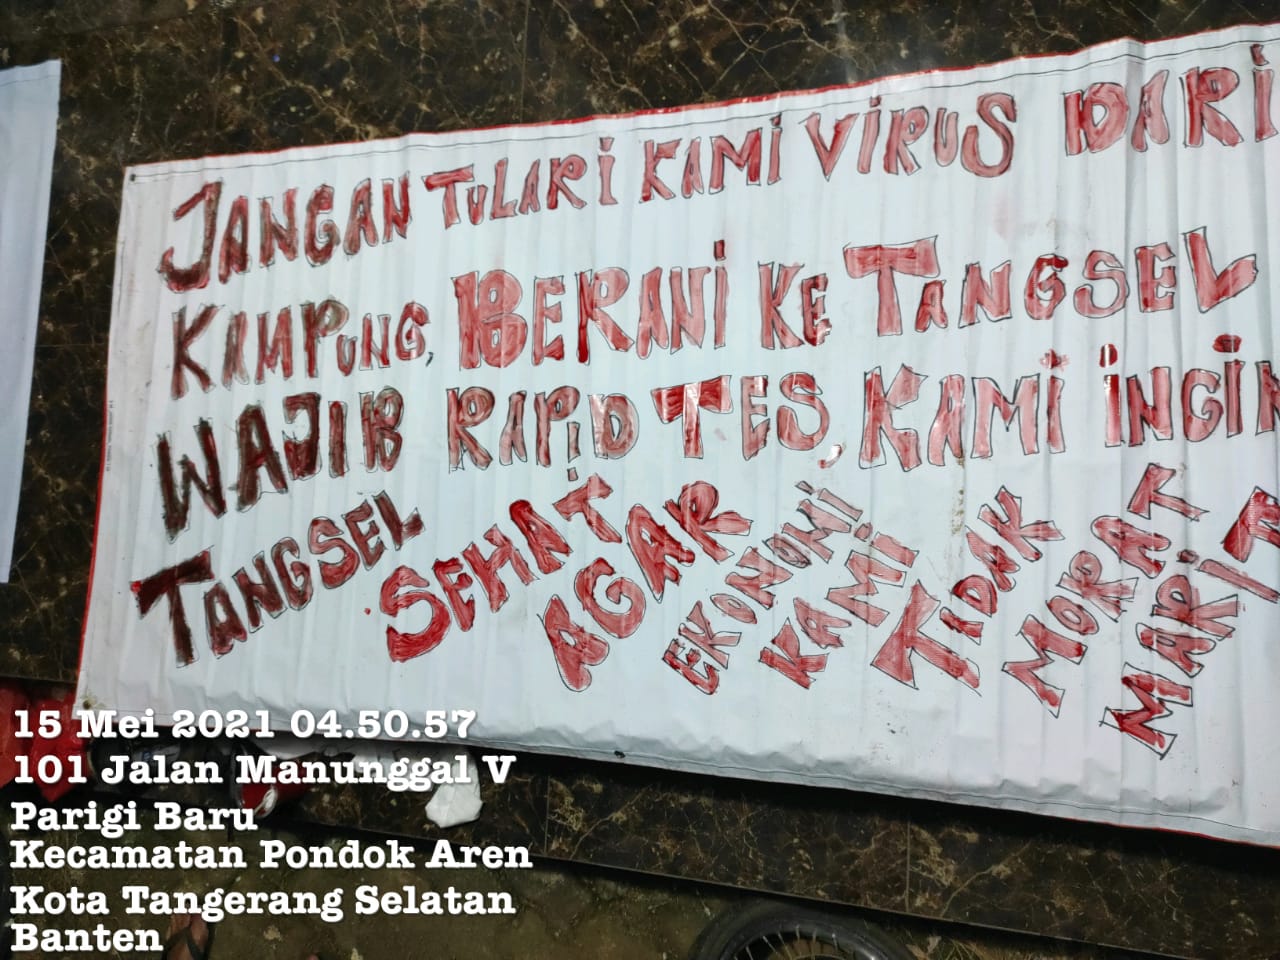 JANGAN TULARI KAMI VIRUS DARI
KAMPUNG, BERANI KE TANGSEL
WAJIB RAPID TES, KAMI INGIN
TANGSEL SEHAT AGAR EKONOMI KAMI TIDAK MORAT MARIT
15 Mei 2021 04.50.57
101 Jalan Manunggal V
Parigi Baru
Kecamatan Pondok Aren
Kota Tangerang Selatan
Banten